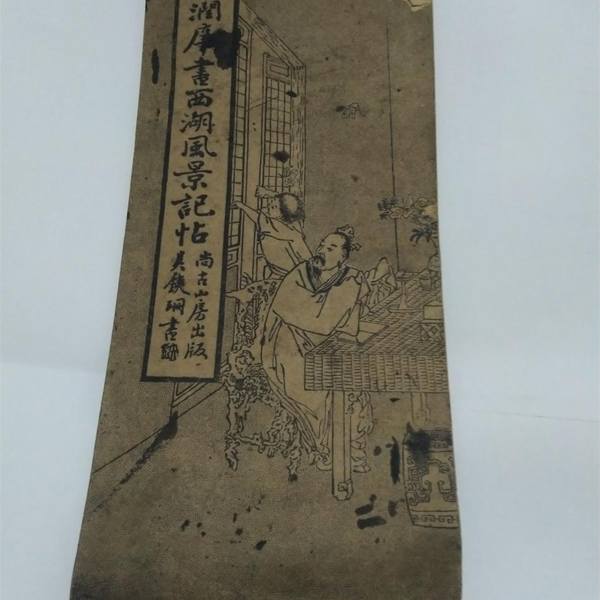 潤庠書西湖風景記帖
尚古山房出版
吳鐵珊書